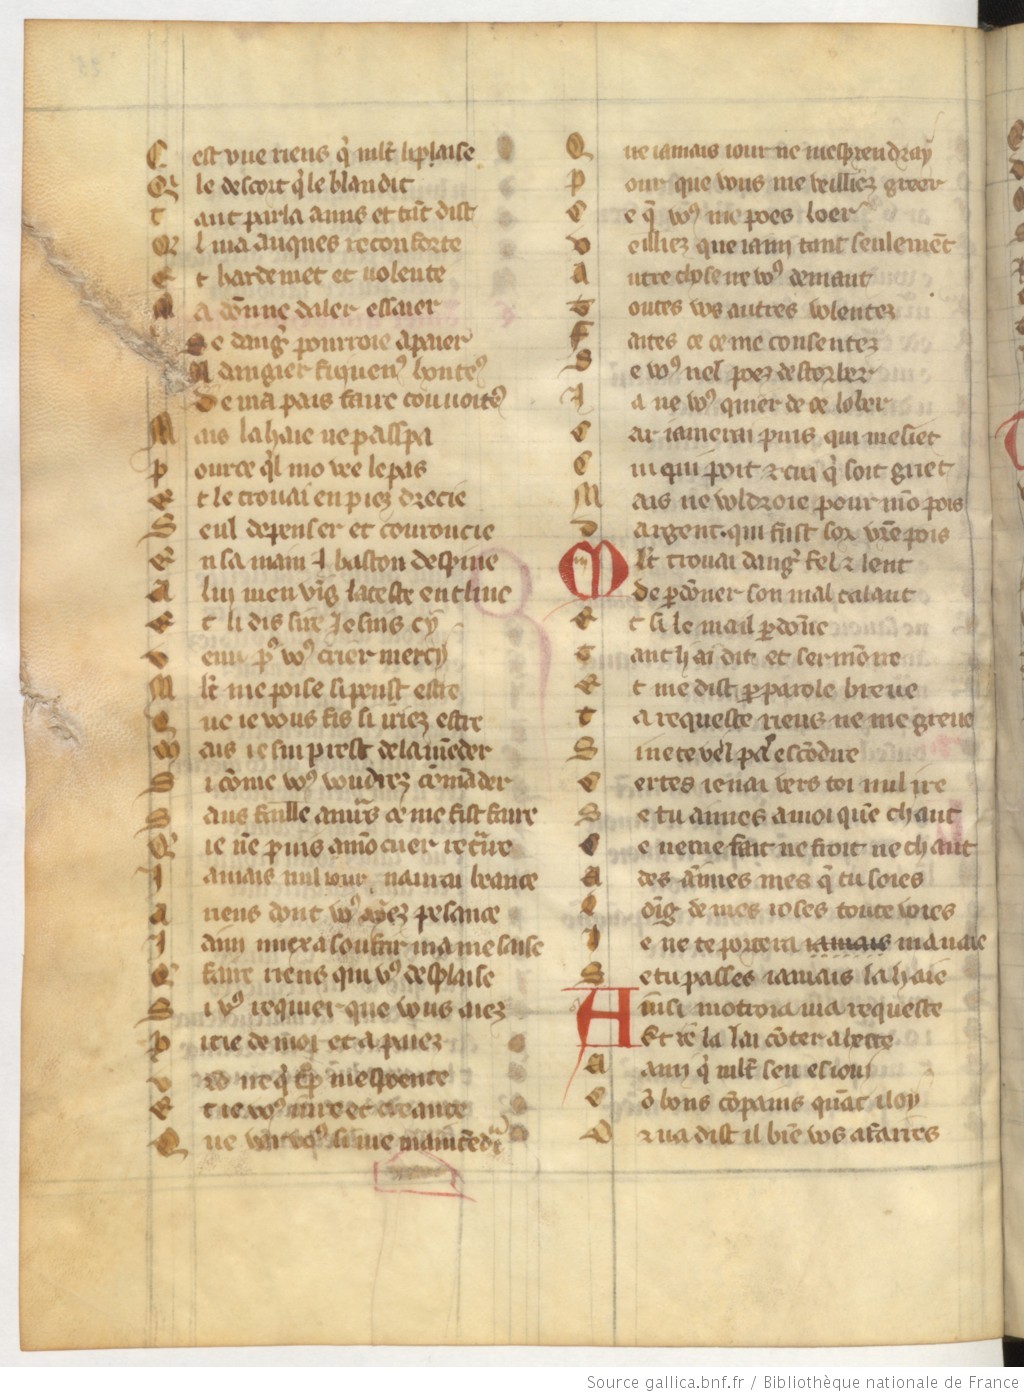 C est vne riens q̃ mlt̃ li plaise
Q le descort q̃ le blandit
T ant parla amis et tãt dist
Q l ma auques reconforte
E t hardemet et volente
M a dõnne daler essaier
Se dangˀ pourroie apaier
A dangier suy venˀ honteˀ
De ma pais faire couuoiteˀ
M ais la haie ne passpa
P ource ql̃ mo vee le pas
E t le trouai en piez drecie
S eul de penser et couroucie
E n sa main .I. baston despine
A luy men vĩg la teste encline
E t li dis sire Ie suis cy
V enu pˀ voˀ crier mercy
M lt̃ me poise si peust estre
Q ue ie vous fis si iriez estre
M ais ie sui prest de lamẽder
S i cõme voˀ voudrez cõmãder
S ans faille amˀrs ce me fist faire
Q ie nẽ puis mõ cuer retˀire
I amais nul iour naurai beance
A riens dont voˀ aiez pesance
I aim miex a soufrir ma mesaise
Q faire riens qui voˀ desplaise
S i voˀ requier que vous aiez
P itie de moi et apaiez
E t ie voˀ iure et creance
Q ue iamais iour ne mesprendray
P our que vous me veilliez greer
C e q̃ voˀ me poes veer
V eilliez que iaim tant seulemẽt
A utre chose ne voˀ demant
T outes vos autres volentez
F aites ce ce me consentez
S e voˀ nel poez destorber
I a ne voˀ quier de ce lober
C ar iamerai puis qui me siet
C ui qui poit et cui q̃ soit griet
M ais ne voldroie pour mõ pois
D argent. qui fust sox vrẽ pois
Mlt̃ trouai dangˀ fel et lent
De pdõner son mal talant
E t si le mail pdõne
T ant hai dit et sermõne
E t me dist par parole breue
T a requeste riens ne me greue
S i ne te vel pas escõdire
C ertes ie nai vers toi nul ire
S e tu aimes a moi que chaut
C e ne me fait ne froit ne chaut
A des aimes mes q̃ tu soies
L oĩg de mes roses toute voies
I e ne te porterai iamais manaie
S e tu passes iamais la haie
Ainsi mottroia ma requeste
Et ie la lai cõter a heste
A ami q̃ mlt̃ sen esioui
C õ bons cõpains quãt il oy
Or va dist il bie͂ vos afaires